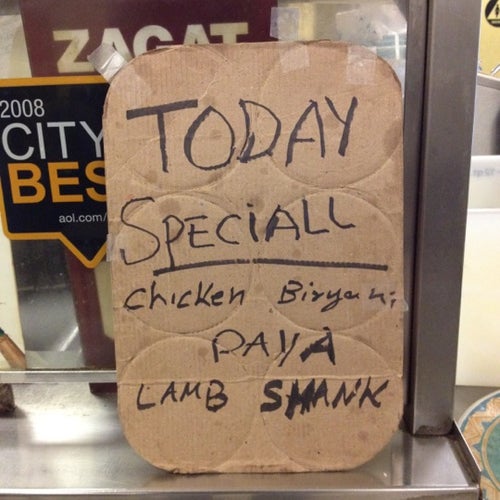 ZAGAT
2008
CITY
BES
aol.com/
TODAY
SPECIALL
Chicken Biryani
PAYA
LAMB SHANK